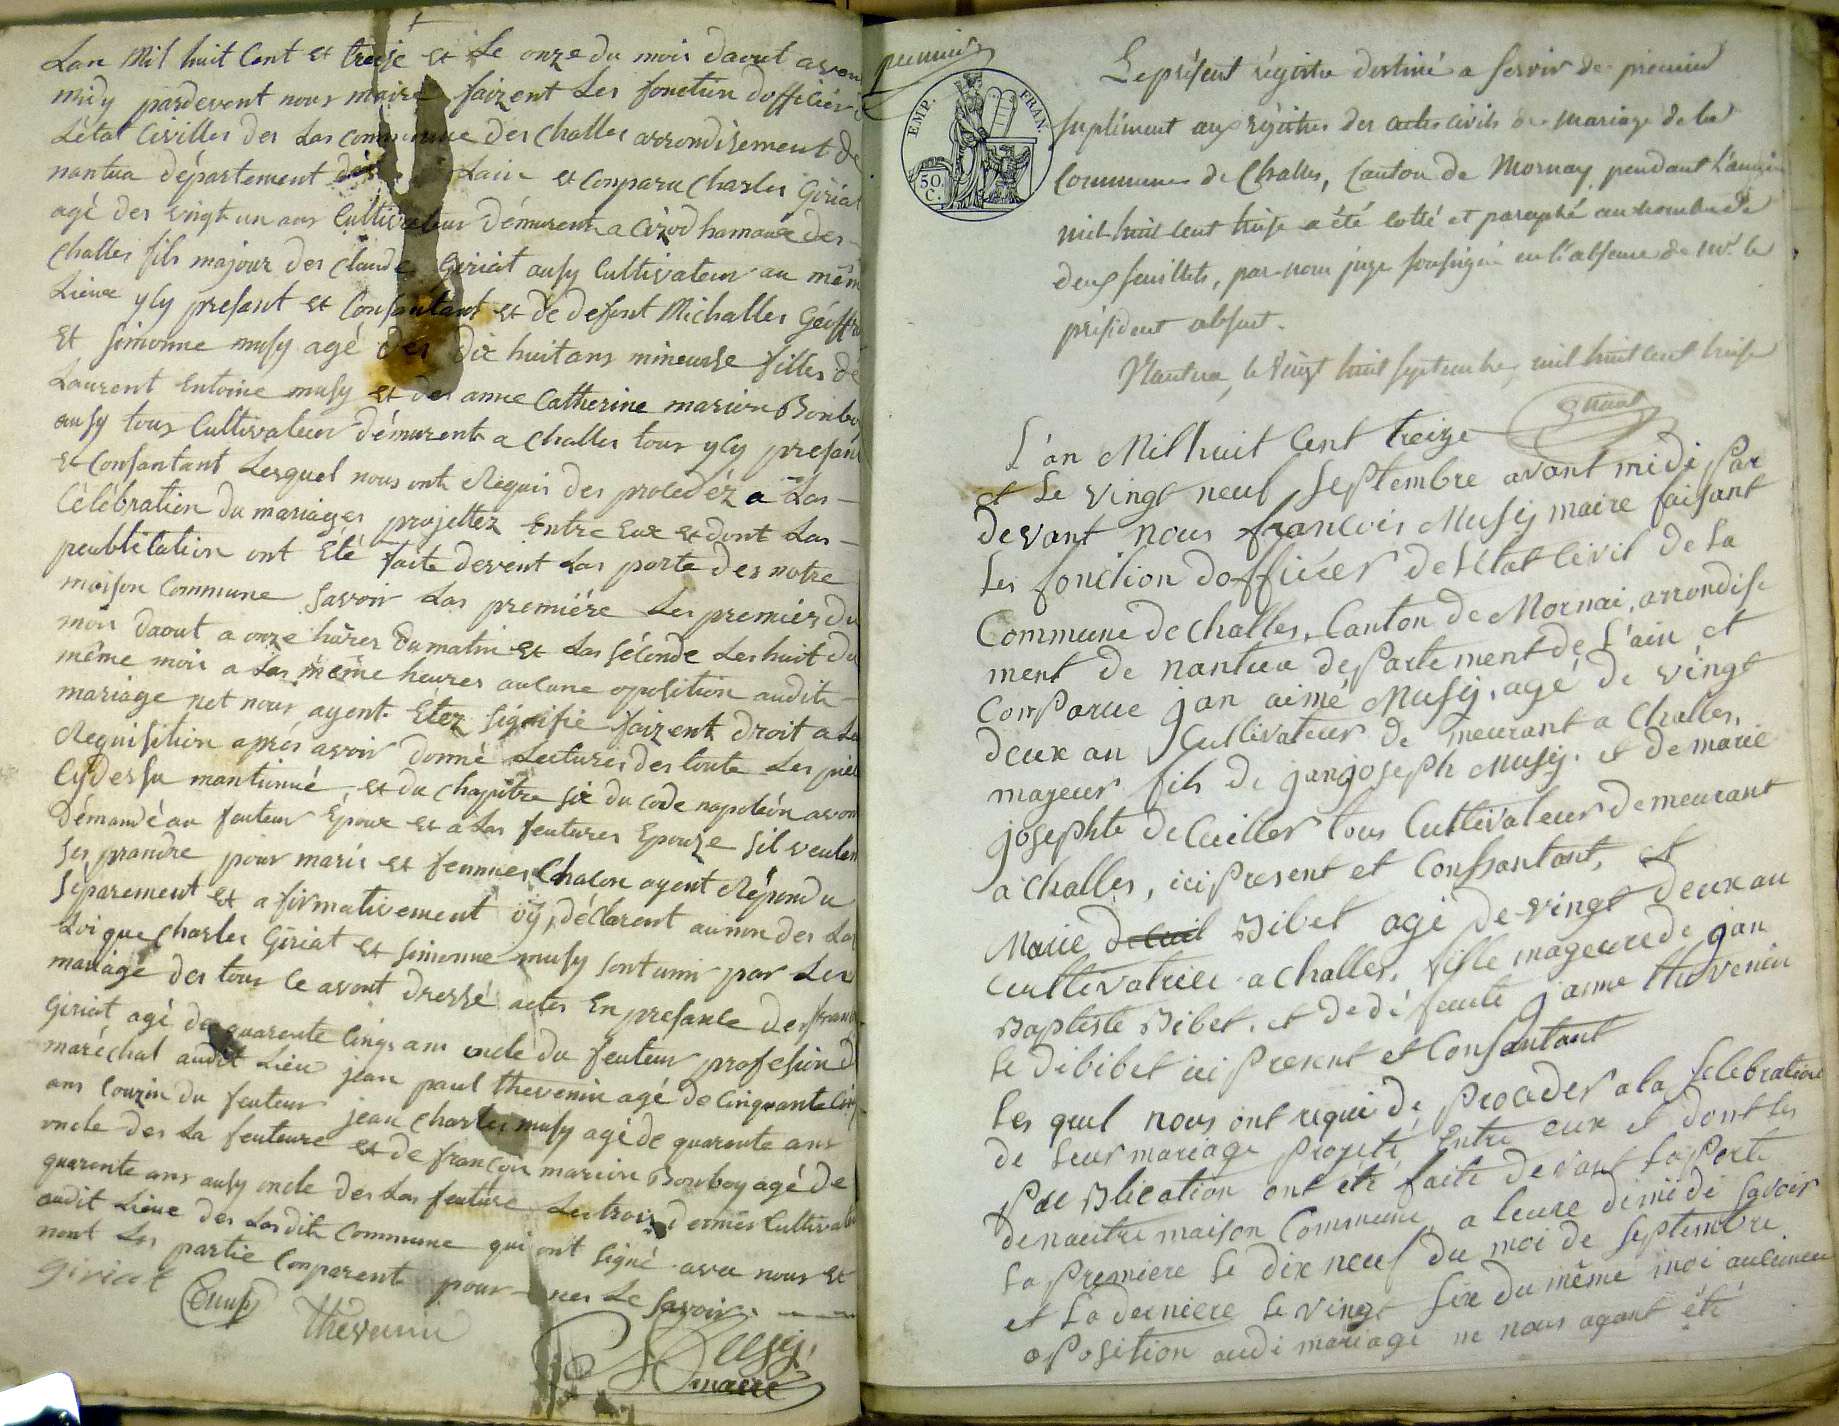 Lan Mil huit Cent et treize et Le onze du mois daout avon
midy pardevent nous maire faizent Les fonction dofficier
Létat Civilles des Las commune des Challes arrondisement de
nantua département dès Lain et Conparu Charles Giriat
agé des vingt un ans Cultivateur démurent a Cizod hamaux des
Challes fils majour des Claude Giriat ausy Cultivateur au même
Lieux ycy presant et Consantant et de defent Michalles Géoffr
Et simonne musy agé des dix huit ans mineurse filles de
Laurent Entoine musy et des anne Catherine marion Bonboy
ausy tous Cultivateur démurent a Challes tous ycy presant
et Consantant Lesquel nous ont Requis des procedéz a Las
Célébration du mariages projettez Entre Eux et dont Las
peublication ont Eté faite devent Las porte des notre
maison Commune Savoir Las premiére Les premiér du
mois daout a onze hüres du matin et Las séconde Les huit du
même mois a Las même heures aucune oposition audit
mariage net nous ayent Étez signifié faizent droit a La
Requisition aprés avoir donné Lectures des toute Les piéc
Cydessu mantionné, et du Chapitre six du Code napoléon avon
démandé au feuteur Epoux et a Las feutures Epouze sil veulen
Ses prandre pour maris et femmes Chacon ayent Répondu
Séparement et afirmativement oÿ, déclarent au nom des La
Loi que Charles Giriat et simonne musy sont unis par Les
mariage des tous Ce avont dressé actes En presance des fran
Giriat agé de quarente Cinqs ans oncle du feuteur profesion d
maréchal audit Lieu jean paul thevenin agé de Cinquante Cin
ans Couzin du feuteur jean Charles musy agé de quarente ans
oncle des La feuteure et de françois marion Bonboy agé de
quarente ans ausy oncle des Las feuture Les trois derniés Cultivate
audit Lieux des Lasdite Commune qui ont signé avec nous et
nont Les partie Conparent pour nes Le savoir.
Giriat Cmusy thevenin
Musy
maire
premier
EMP. FRAN.
50.
C.
Le présent régistre destiné a servir de premier
supliment aux régistres des actes civils de mariage de la
Commune de Challes, Canton de Mornay pendant l'année
mil huit cent treize a été cotté et paraphé au nombre de
deux feuillets, par nous juge soussigné en l'absence de mr. le
président absent.
Nantua, le vingt huit septembre, mil huit cent treize
L'ân Mil huit Cent treize
et Le vingt neuf septembre avant midi par
devant nous françois Musy maire faisant
les fonction dofficiér de l'état Civil de la
Commune de Challes, Canton de Mornai, arrondise
ment de nantua departement de L'ain et
Conparue jan aimé Musy, agé de vingt
deux an Cultivateur de meurant a Challes,
mageur fils de jan joseph Musy. et de marie
josephte de Cuiller tous Cultivateur demeurant
a Challes, ici present et Consantant, et
Marie Bibet agé de vingt deux an
Cultivatrice a Challes, fille mageure de jan
Baptiste Bibet. et de défeunte janne thevenin
Le di bibet ici present et Consantant
Les quel nous ont requi de proceder a la selebration
de leur mariage projeté Entre eux et dont les
pue Blication ont été faite devant La porte
de nautre maison Commune a leure di midi Savoir
La premiere le dix neuf du moi de Septembre
et La derniere le vingt six du même moi aucune
oposition audi mariage ne nous ayant été